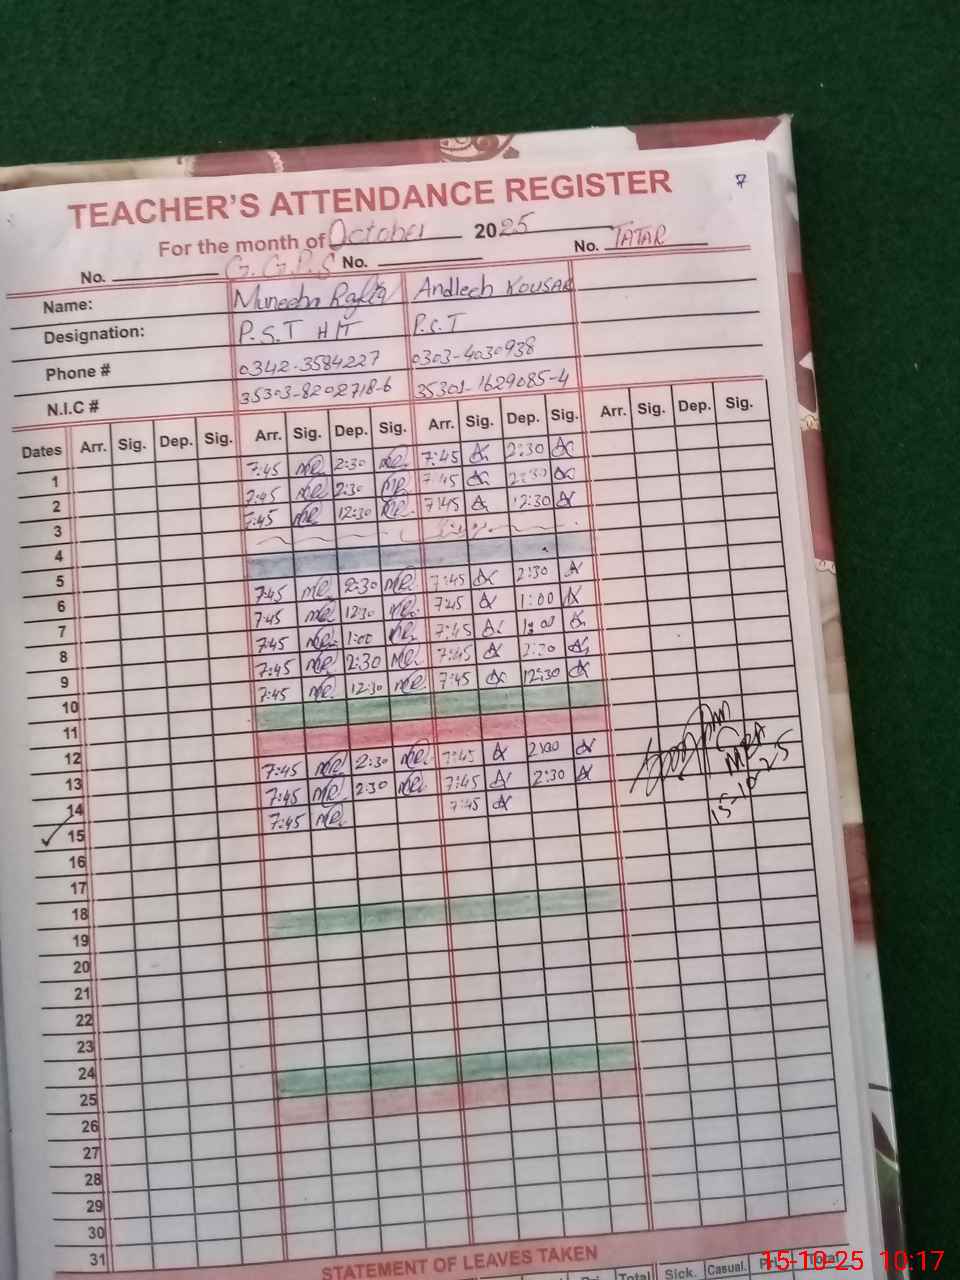 7
TEACHER'S ATTENDANCE REGISTER
For the month of October 2025
No. G.G.P.S No. No. TATAR
Name: Muneeba Andleeb Kousar
Designation: P.S.T HT P.S.T
Phone # 0342-3584227 0303-4030938
N.I.C # 35303-8202718-6 35301-1629085-4
Dates Arr. Sig. Dep. Sig. Arr. Sig. Dep. Sig. Arr. Sig. Dep. Sig. Arr. Sig. Dep. Sig.
1 7:45 2:30 7:45 2:30
2 7:45 2:30 7:45 2:30
3 7:45 12:30 7:45 12:30
4
5
6 7:45 2:30 7:45 2:30
7 7:45 12:30 7:45 1:00
8 7:45 1:00 7:45 1:00
9 7:45 2:30 7:45 2:30
10 7:45 12:30 7:45 12:30
11
12
13 7:45 2:30 7:45 2:00
14 7:45 2:30 7:45 2:30
15 7:45 7:45
MEA
15-10-25
16
17
18
19
20
21
22
23
24
25
26
27
28
29
30
31
STATEMENT OF LEAVES TAKEN
Total Sick. Casual. Total
15-10-25 10:17